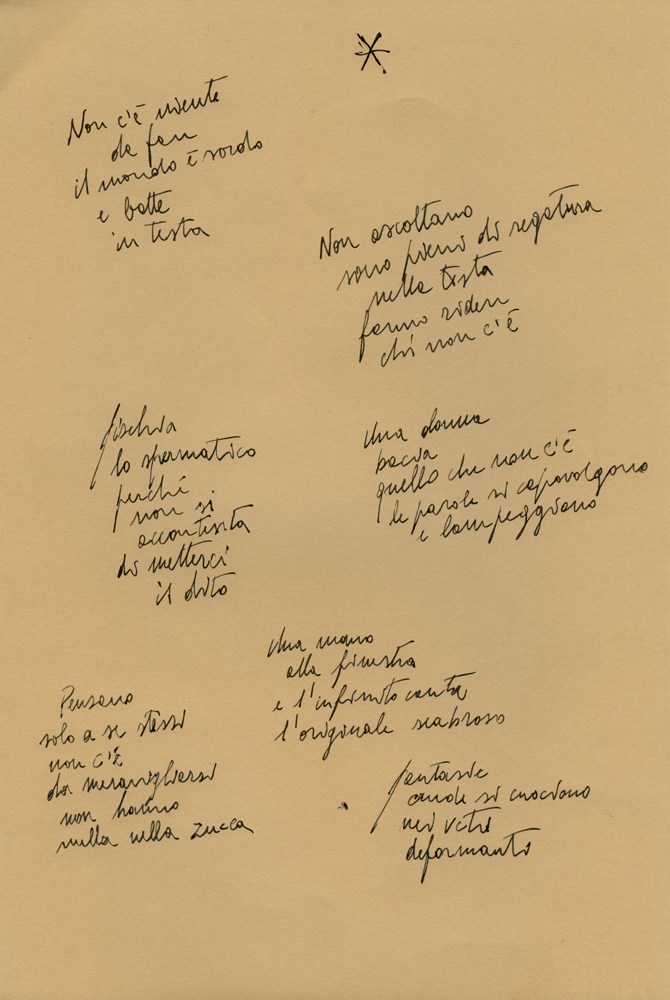 Non c'è niente
da fare
il mondo è sordo
e batte
in testa
Non ascoltano
sono pieni di segatura
nella testa
fanno ridere
chi non c'è
fischia
lo spermatico
perché
non si
accontenta
di metterci
il dito
Una donna
bacia
quello che non c'è
le parole si capovolgono
e lampeggiano
Una mano
alla finestra
e l'infinito canta
l'originale scabroso
Pensano
solo a se stessi
non c'è
da meravigliarsi
non hanno
nulla nella zucca
fantasie
crude si cuociono
nei vetri
deformanti